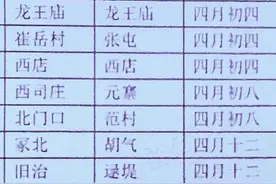 龙王庙 龙王庙 四月初四
崔岳村 张屯 四月初四
西店 西店 四月初四
西司庄 元寨 四月初八
北门口 范村 四月初八
冢北 胡气 四月十二
旧治 逯堤 四月十二